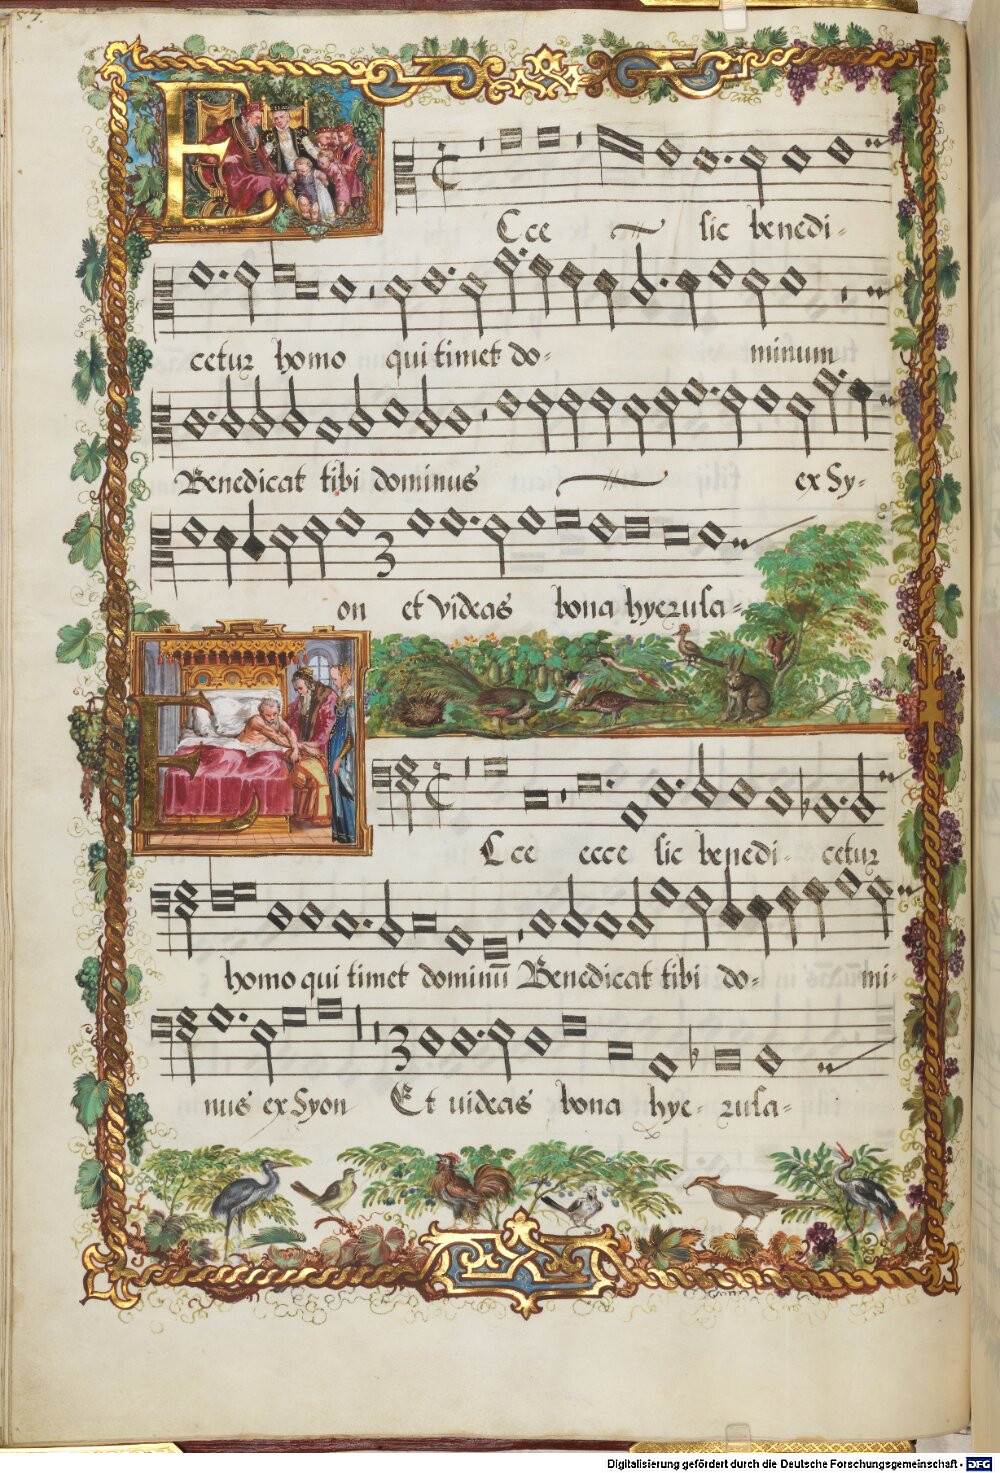 87.
Ecce sic benedi-
cetur homo qui timet do- minum
Benedicat tibi dominus ex Sy-
on et videas bona hyerusa-
Ecce ecce sic benedi- cetur
homo qui timet dominū Benedicat tibi do- mi-
nus ex Syon Et uideas bona hye- rusa-
Digitalisierung gefördert durch die Deutsche Forschungsgemeinschaft - DFG